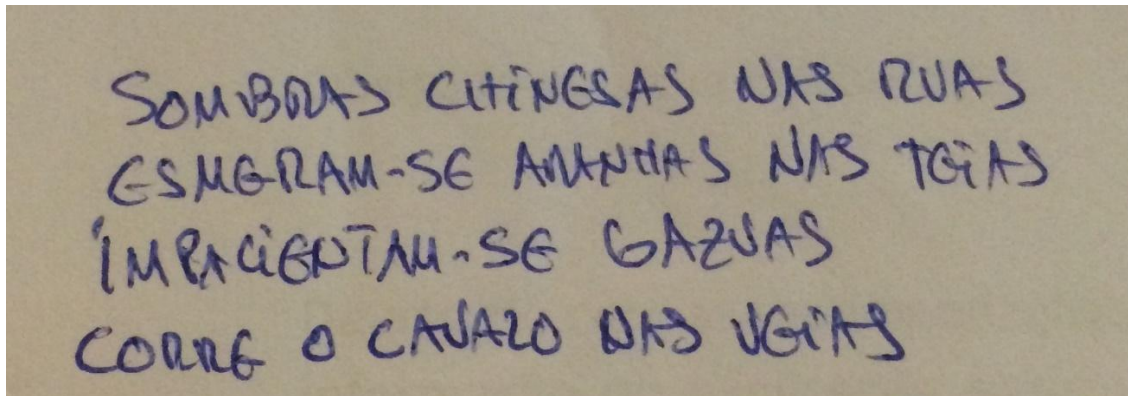 SOMBRAS CHINESAS NAS RUAS
ESMERAM-SE ARANHAS NAS TEIAS
IMPACIENTAM-SE GAZUAS
CORRE O CAVALO NAS VEIAS